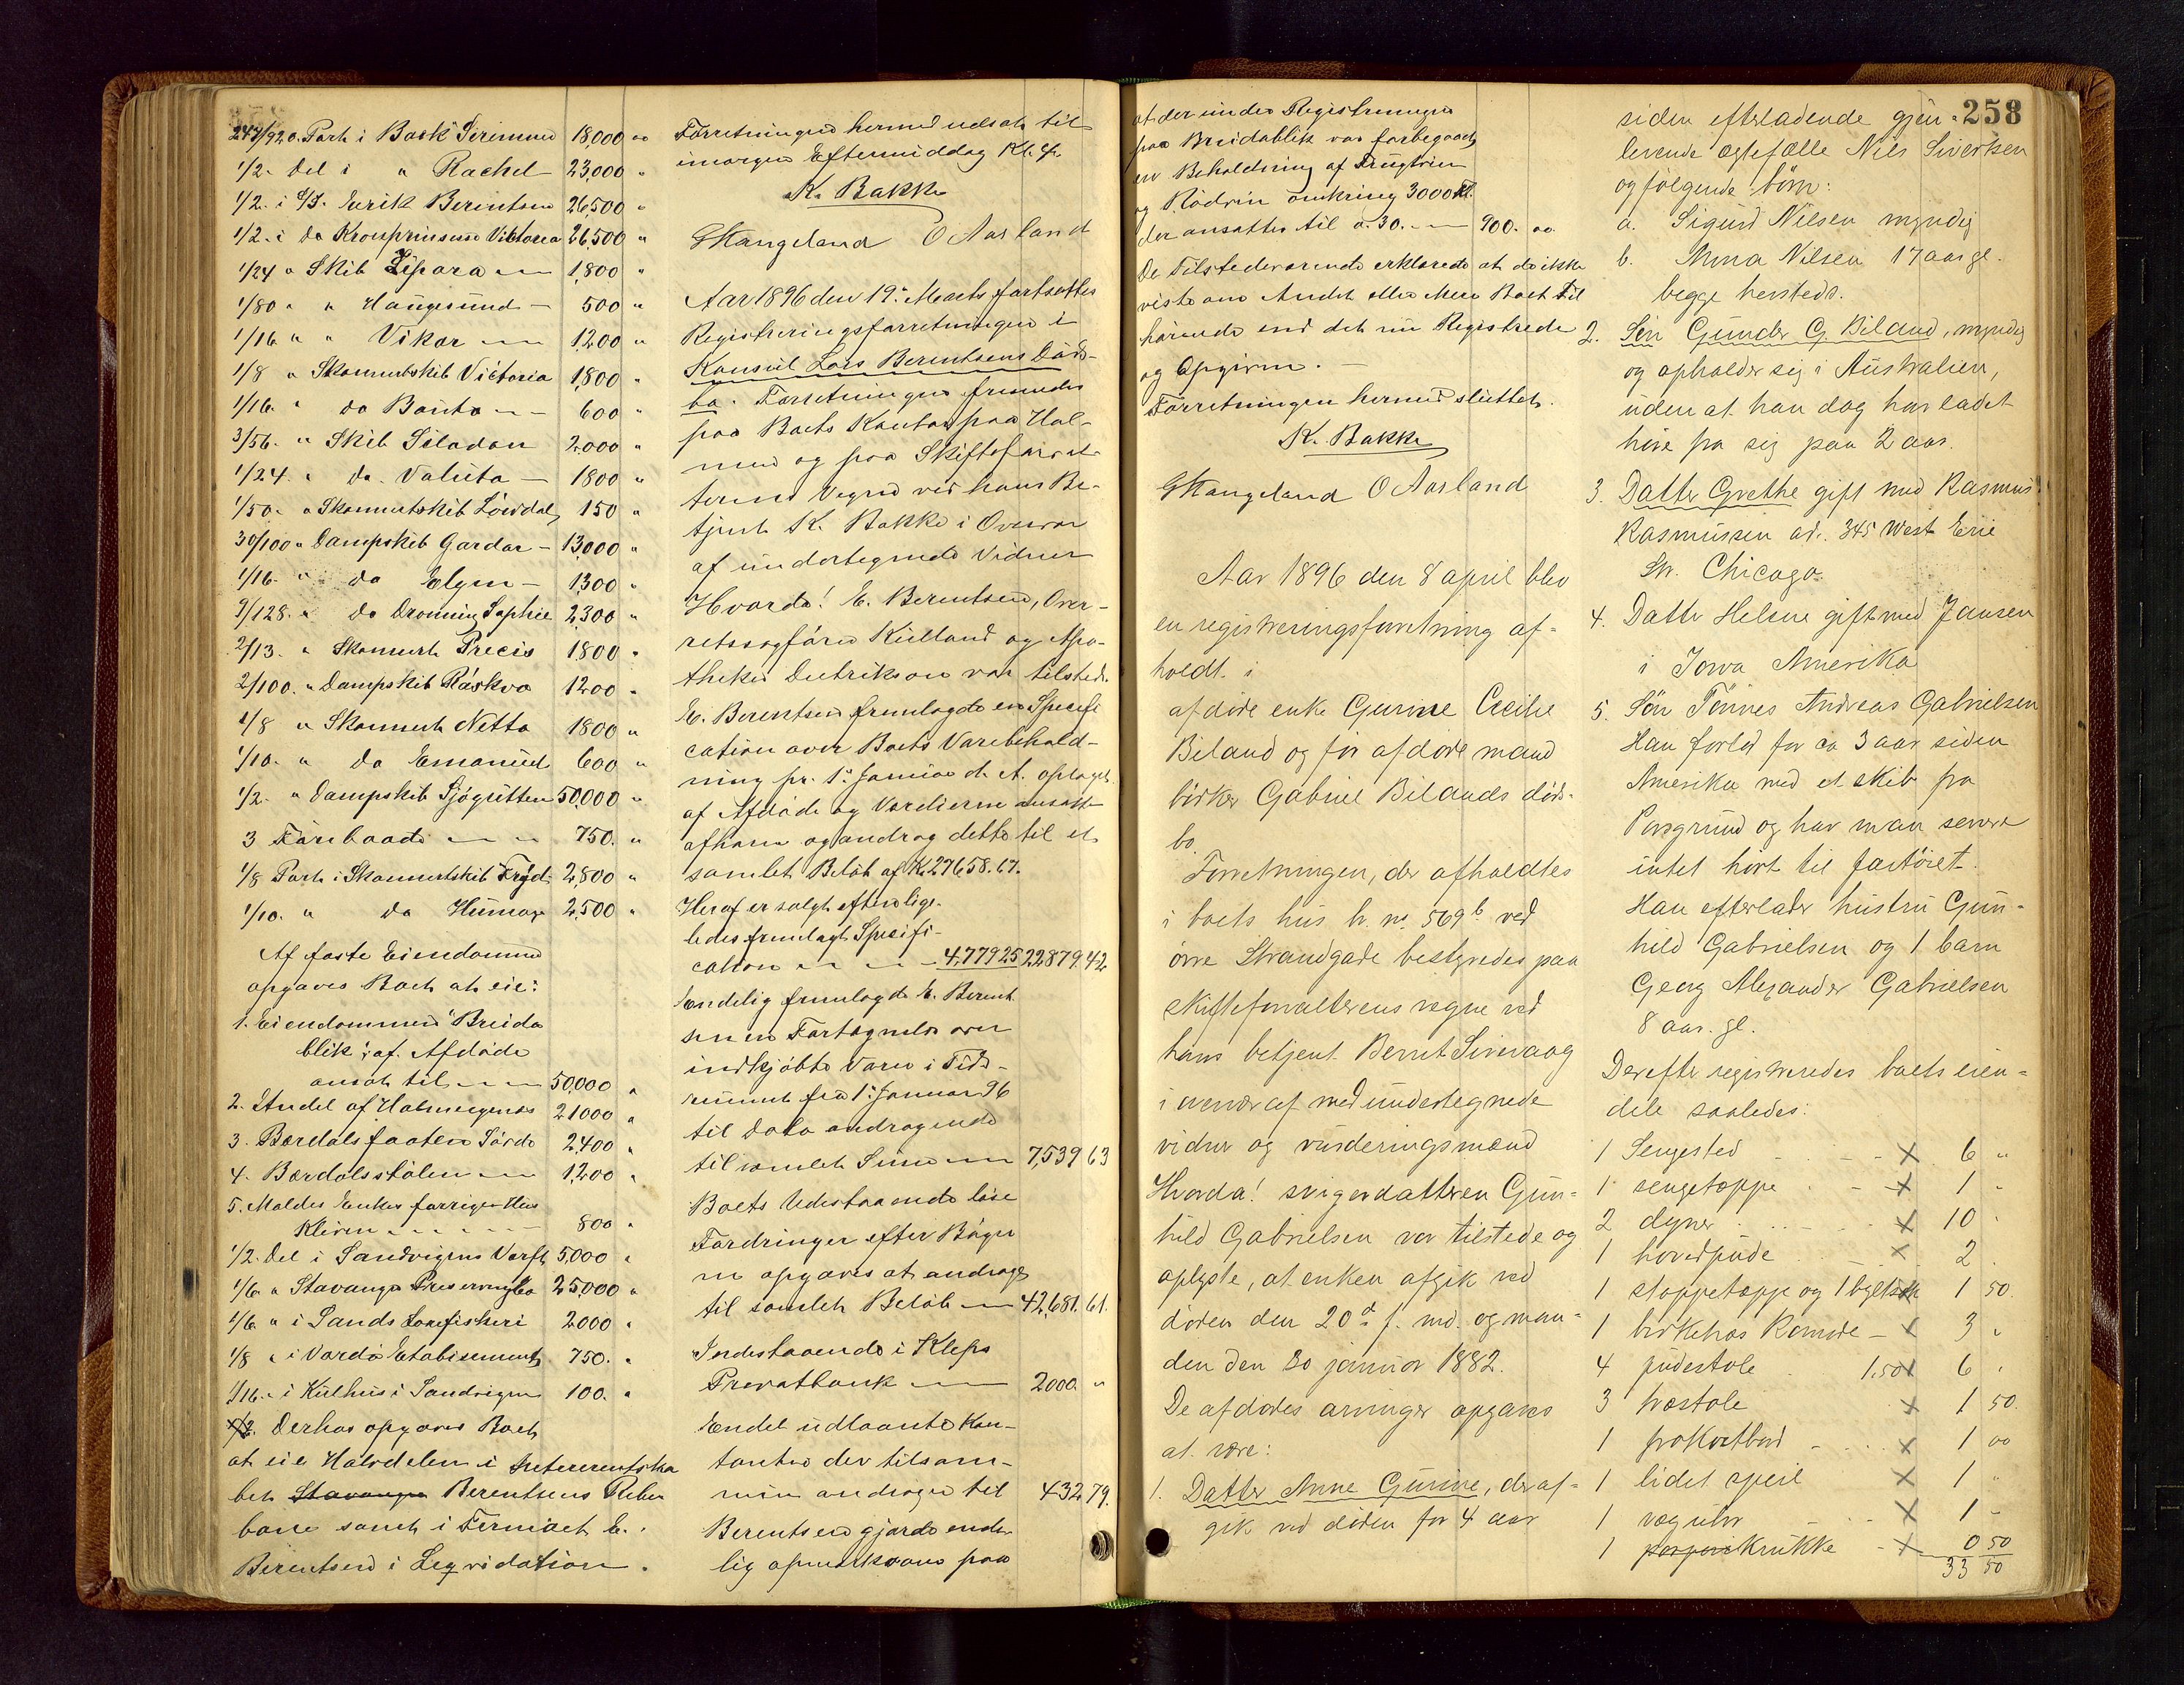 247/920. Part i Bark Terimma 18,000 "
1/2. Del i " Rachel 23,000 "
1/2. i S/S. Eerik Berentsen 26,500 "
1/2. i do Kronprinsesse Viktoria 26,500 "
1/24 " Skib Zipora 1,800 "
1/80 " " Haugesund 500 "
1/16 " " Vikar 1,200 "
1/8 " Skonnertskib Victoria 1,800 "
1/16. " do Bonto 600 "
3/56. " Skib Siladon 2,000 "
1/24. " do. Valuta 1800 "
1/50. " Skonnertskib Lövdal 150 "
30/100 " Dampskib Gardar 13,000 "
1/16. " do Elgen 1,300 "
9/128. " do Dronning Sophie 2,300 "
2/13. " Skonnert Precis 1800 "
2/100. " Dampskib Röskva 1200 "
1/8 " Skonnert Netto 1800 "
1/10. " do Emanuel 600 "
1/2. " Dampskib Sjögutten 50,000 "
3 Förebaade 750. "
1/8 Part i Skonnertskib Fryd 2,800 "
1/10. " do 2,500 "
Af faste Eiendomme
opgaves Boet at eie:
1. Eiendommen "Breida
blik", af. Afdöde
ansat til 50,000 "
2. Andel af Holmeegenes 21000 "
3. Bærdalsfaaten Sörde 2,400 "
4. Bærdalsstölen 1,200 "
5. Maldes Enkes forrige Hus
Kleven 800 "
1/2. Del i Sandvigens Værft 5,000 "
1/6 " Stavanger Preserving Co 25,000 "
1/6 " i Sands Laxefiskeri 2000 "
1/8 " i Vardö Etablisement 750. "
1/16. " i Kulhus i Sandvigen 100. "
Derhos opgaves Boet
at eie Halvdelen i Intressentska
bet Stavanger Berentsens Reber
bane samt i Firmaet E.
Berentsen i Leqvidation.
Forretningen hermed udsat til
imorgen Eftermiddag Kl. 4.
K. Bakke
GHangeland O Aarland
Aar 1896 den 19. Marts fortsattes
Registreringsforretningen i
Konsul Lars Berentsens Döds-
bo. Forretningen fremmedes
paa Boets Kontor paa Hol-
men og paa Skifteforval-
terens Vegne ved hans Be-
tjent K. Bakke i Overvær
af undertegnede Vidner
Hvorda! E. Berentsen, Over-
retssagförer Kielland og Apo-
theker Diedrikson var tilstede.
E. Berentsen fremlagde en Specifi
cation over Boets Varebehold-
ning pr. 1. Januar d. A. optaget
af Afdöde og Værdierne ansatte
af ham og androg dette til et
samlet Belöb af Kr. 27658.67.
Heraf er solgt efter lige-
ledes fremlagt Specifi-
cation 4,779 25 22879 42
Endelig fremlagde E. Berent
sen en Fortegnelse over
indkjöbte Varer i Tids-
rummet fra 1. Januar 96
til Dato andragende
til samlet Sum 7,539 63
Boets Udestaaende löse
Fordringer efter Böger
ne opgaves at andrage
til samlet Belöb 42,681. 61.
Indestaaende i Kleps
Privatbank 2000 "
Endel udlaante Kon-
tanter der tilsam-
men androger til 432 79.
Berentsen gjorde ende-
lig opmerksom paa
at der under Registreringen
paa Breidablik var forbigaaet
en Beholdning af Rugtvin
og Rödvin omkring 3000 Fl.
der ansattes til à 30. 900. oo.
De Tilstedeværende erklærede at de ikke
viste om Andet eller Mere Boet til
hörende end det nu Registrerede
og Opgivne.
Forretningen hermed sluttet.
K. Bakke
GHangeland O Aarland
Aar 1896 den 8 april blev
en registreringsforretning af-
holdt i
afdöde enke Gurine Cecilie
Biland og för afdöde mand
bödker Gabriel Bilands döds-
bo.
Forretningen, der afholdtes
i boets hus br. no. 569 b ved
övre Strandgade bestyredes paa
skifteforvalterens vegne ved
hans betjent Bernt Sirevaag
i overvær af medundertegnede
vidner og vurderingsmænd
Hvorda! svigerdatteren Gun-
hild Gabrielsen var tilstede og
oplyste, at enken afgik ved
döden den 20de f. md. og man-
den den 30 januar 1882.
De afdödes arvinger opgaves
at være:
1. Datter Anne Gurine, der af-
gik ved döden for 4 aar
258
siden efterladende gjen-
levende ægtefælle Nils Sivertsen
og fölgende börn:
a. Sigurd Nilsen myndig
b. Anna Nilsen 17 aar gl.
begge hersteds.
2. Sön Gunder G. Biland, myndig
og opholder sig i Australien,
uden at han dog har ladet
höre fra sig paa 2 aar.
3. Datter Grethe gift med Rasmus
Rasmussen ad.. 345 West Erie
Str. Chicago.
4. Datter Helene gift med Jansen
i Iowa Amerika
5. Sön Tönnes Andreas Gabrielsen
Han forlod for ca 3 aar siden
Amerika med et skib fra
Porsgrund og har man senere
intet hört til fartöiet.
Han efterlader hustru Gun-
hild Gabrielsen og 1 barn
Georg Alexander Gabrielsen
8 aar. gl.
Derefter registreredes boets eien-
dele saaledes:
1 Sengested X 6 "
1 sengetæppe X 1 "
2 dyner X 10 "
1 hovedpude X 2 "
1 stoppetæppe og 1 X 1 50.
1 birketræs Komode X 3 "
4 pudestole 1.50 X 6 "
3 træstole X 1 50.
1 X 1 oo
1 lidet speil X 1 "
1 væguhr X 1 "
1 krukke X 0 50
33 50